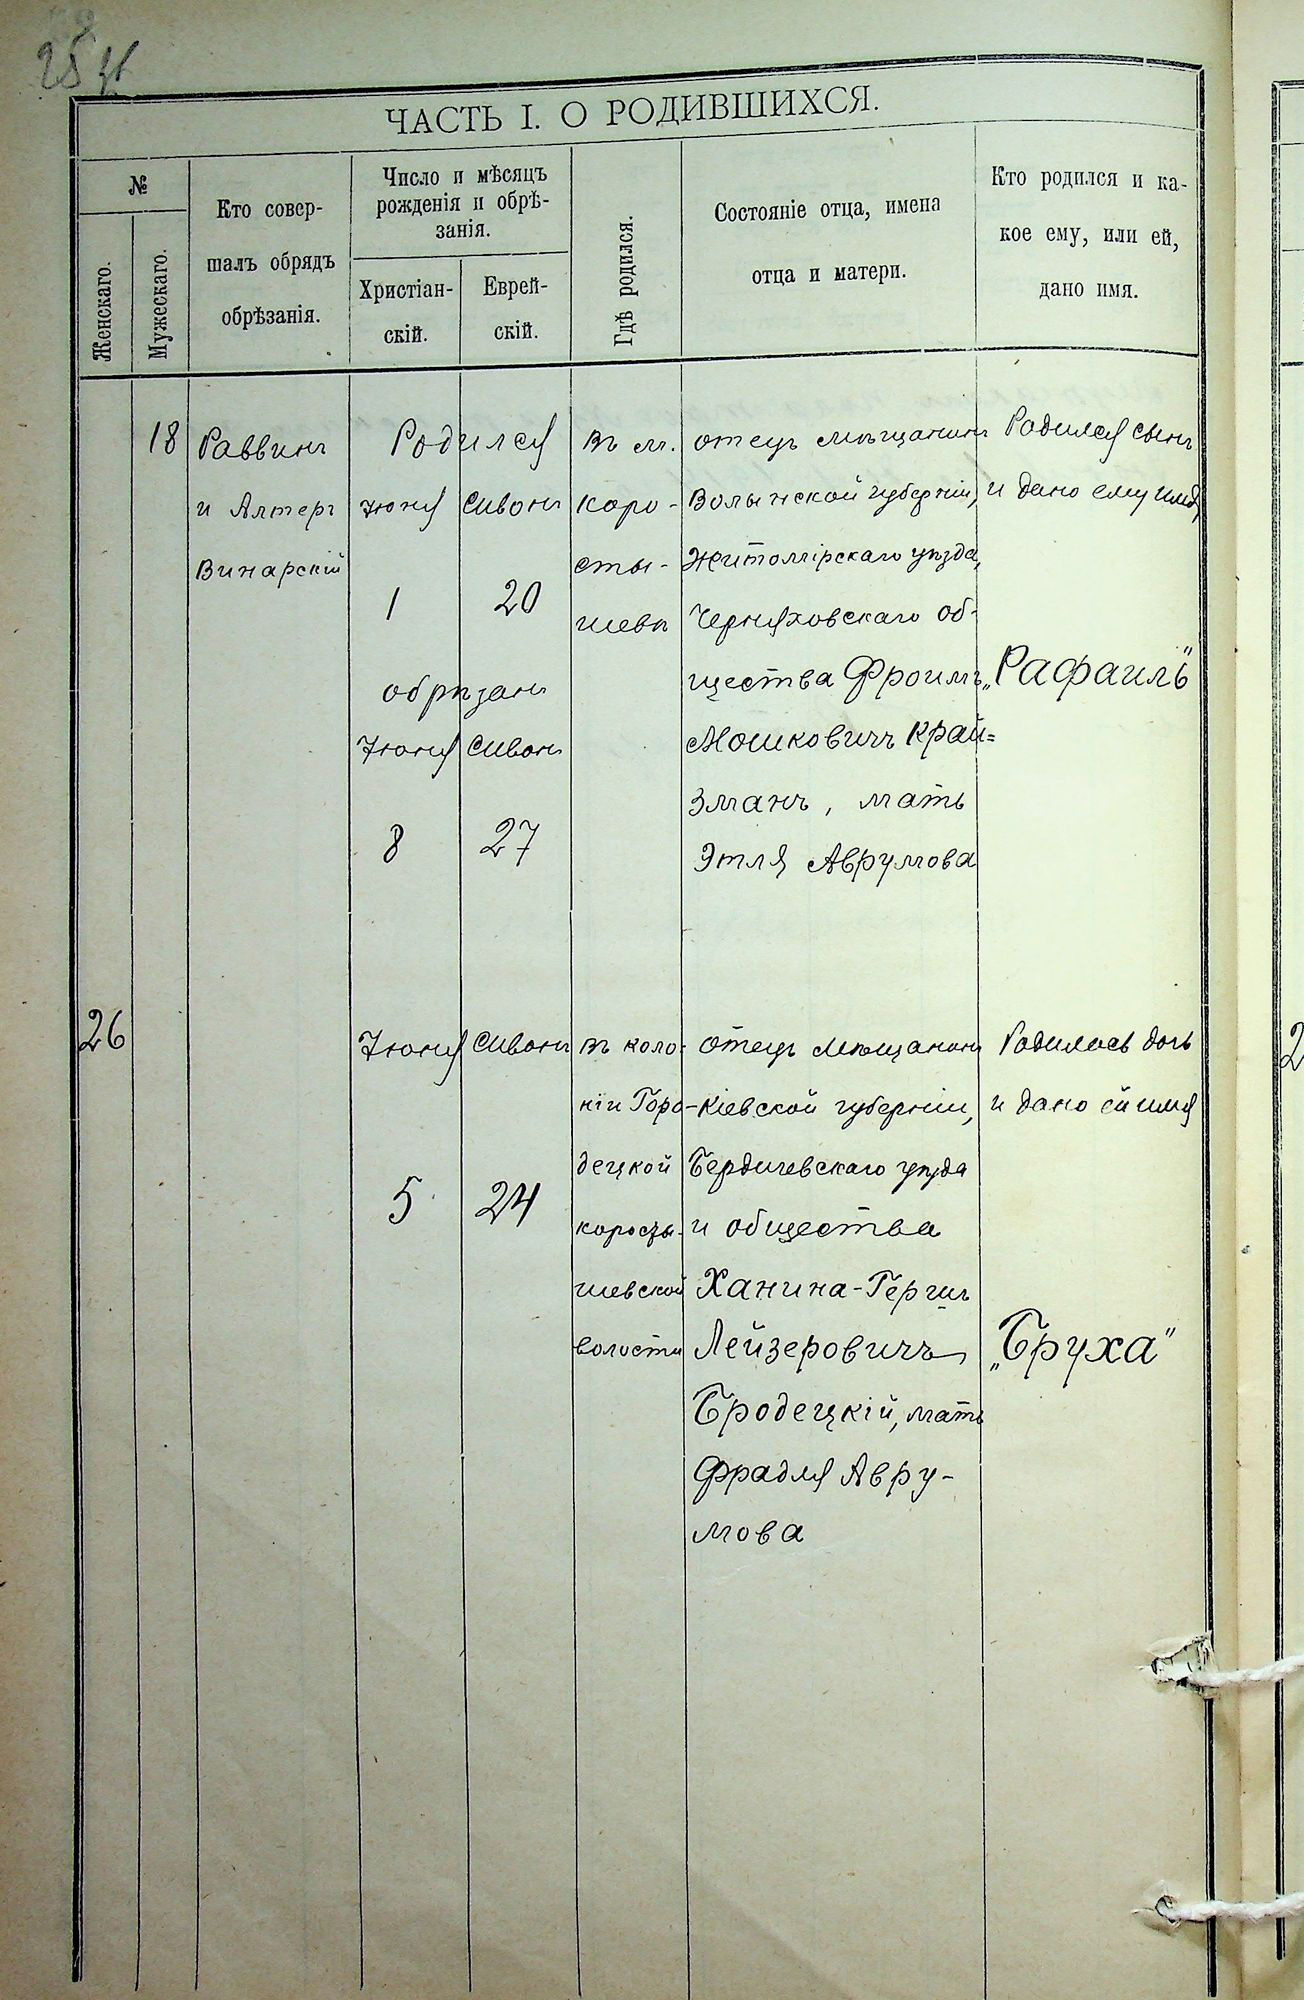 ЧАСТЬ I. О РОДИВШИХСЯ.
№
Женскаго.
Мужескаго.
Кто совер-
шалъ обрядъ
обрѣзанія.
Число и мѣсяцъ
рожденія и обрѣ-
занія.
Христіан-
скій.
Еврей-
скій.
Гдѣ родился.
Состояніе отца, имена
отца и матери.
Кто родился и ка-
кое ему, или ей,
дано имя.
18
Раввинъ
и Алтеръ
Винарскій
Родился
Іюня Сивонъ
1 20
обрѣзанъ
Іюня Сивонъ
8 27
въ м.
Коро-
сты-
шевъ
отецъ мѣщанинъ
Волынской губерніи,
Житомірскаго уѣзда,
Черняховскаго об-
щества Фроимъ
Мошковичъ Край=
зманъ, мать
Этля Аврумова
Родился сынъ
и дано ему имя
„Рафаилъ"
26
Іюня Сивонъ
5 24
въ коло-
ніи Горо-
децкой
коросты-
шевской
волости
отецъ мѣщанинъ
Кіевской губерніи,
Бердичевскаго уѣзда
и общества
Ханина-Гершъ
Лейзеровичъ
Бродецкій, мать
Фрадля Авру-
мова
Родилась дочь
и дано ей имя
„Бруха"
2